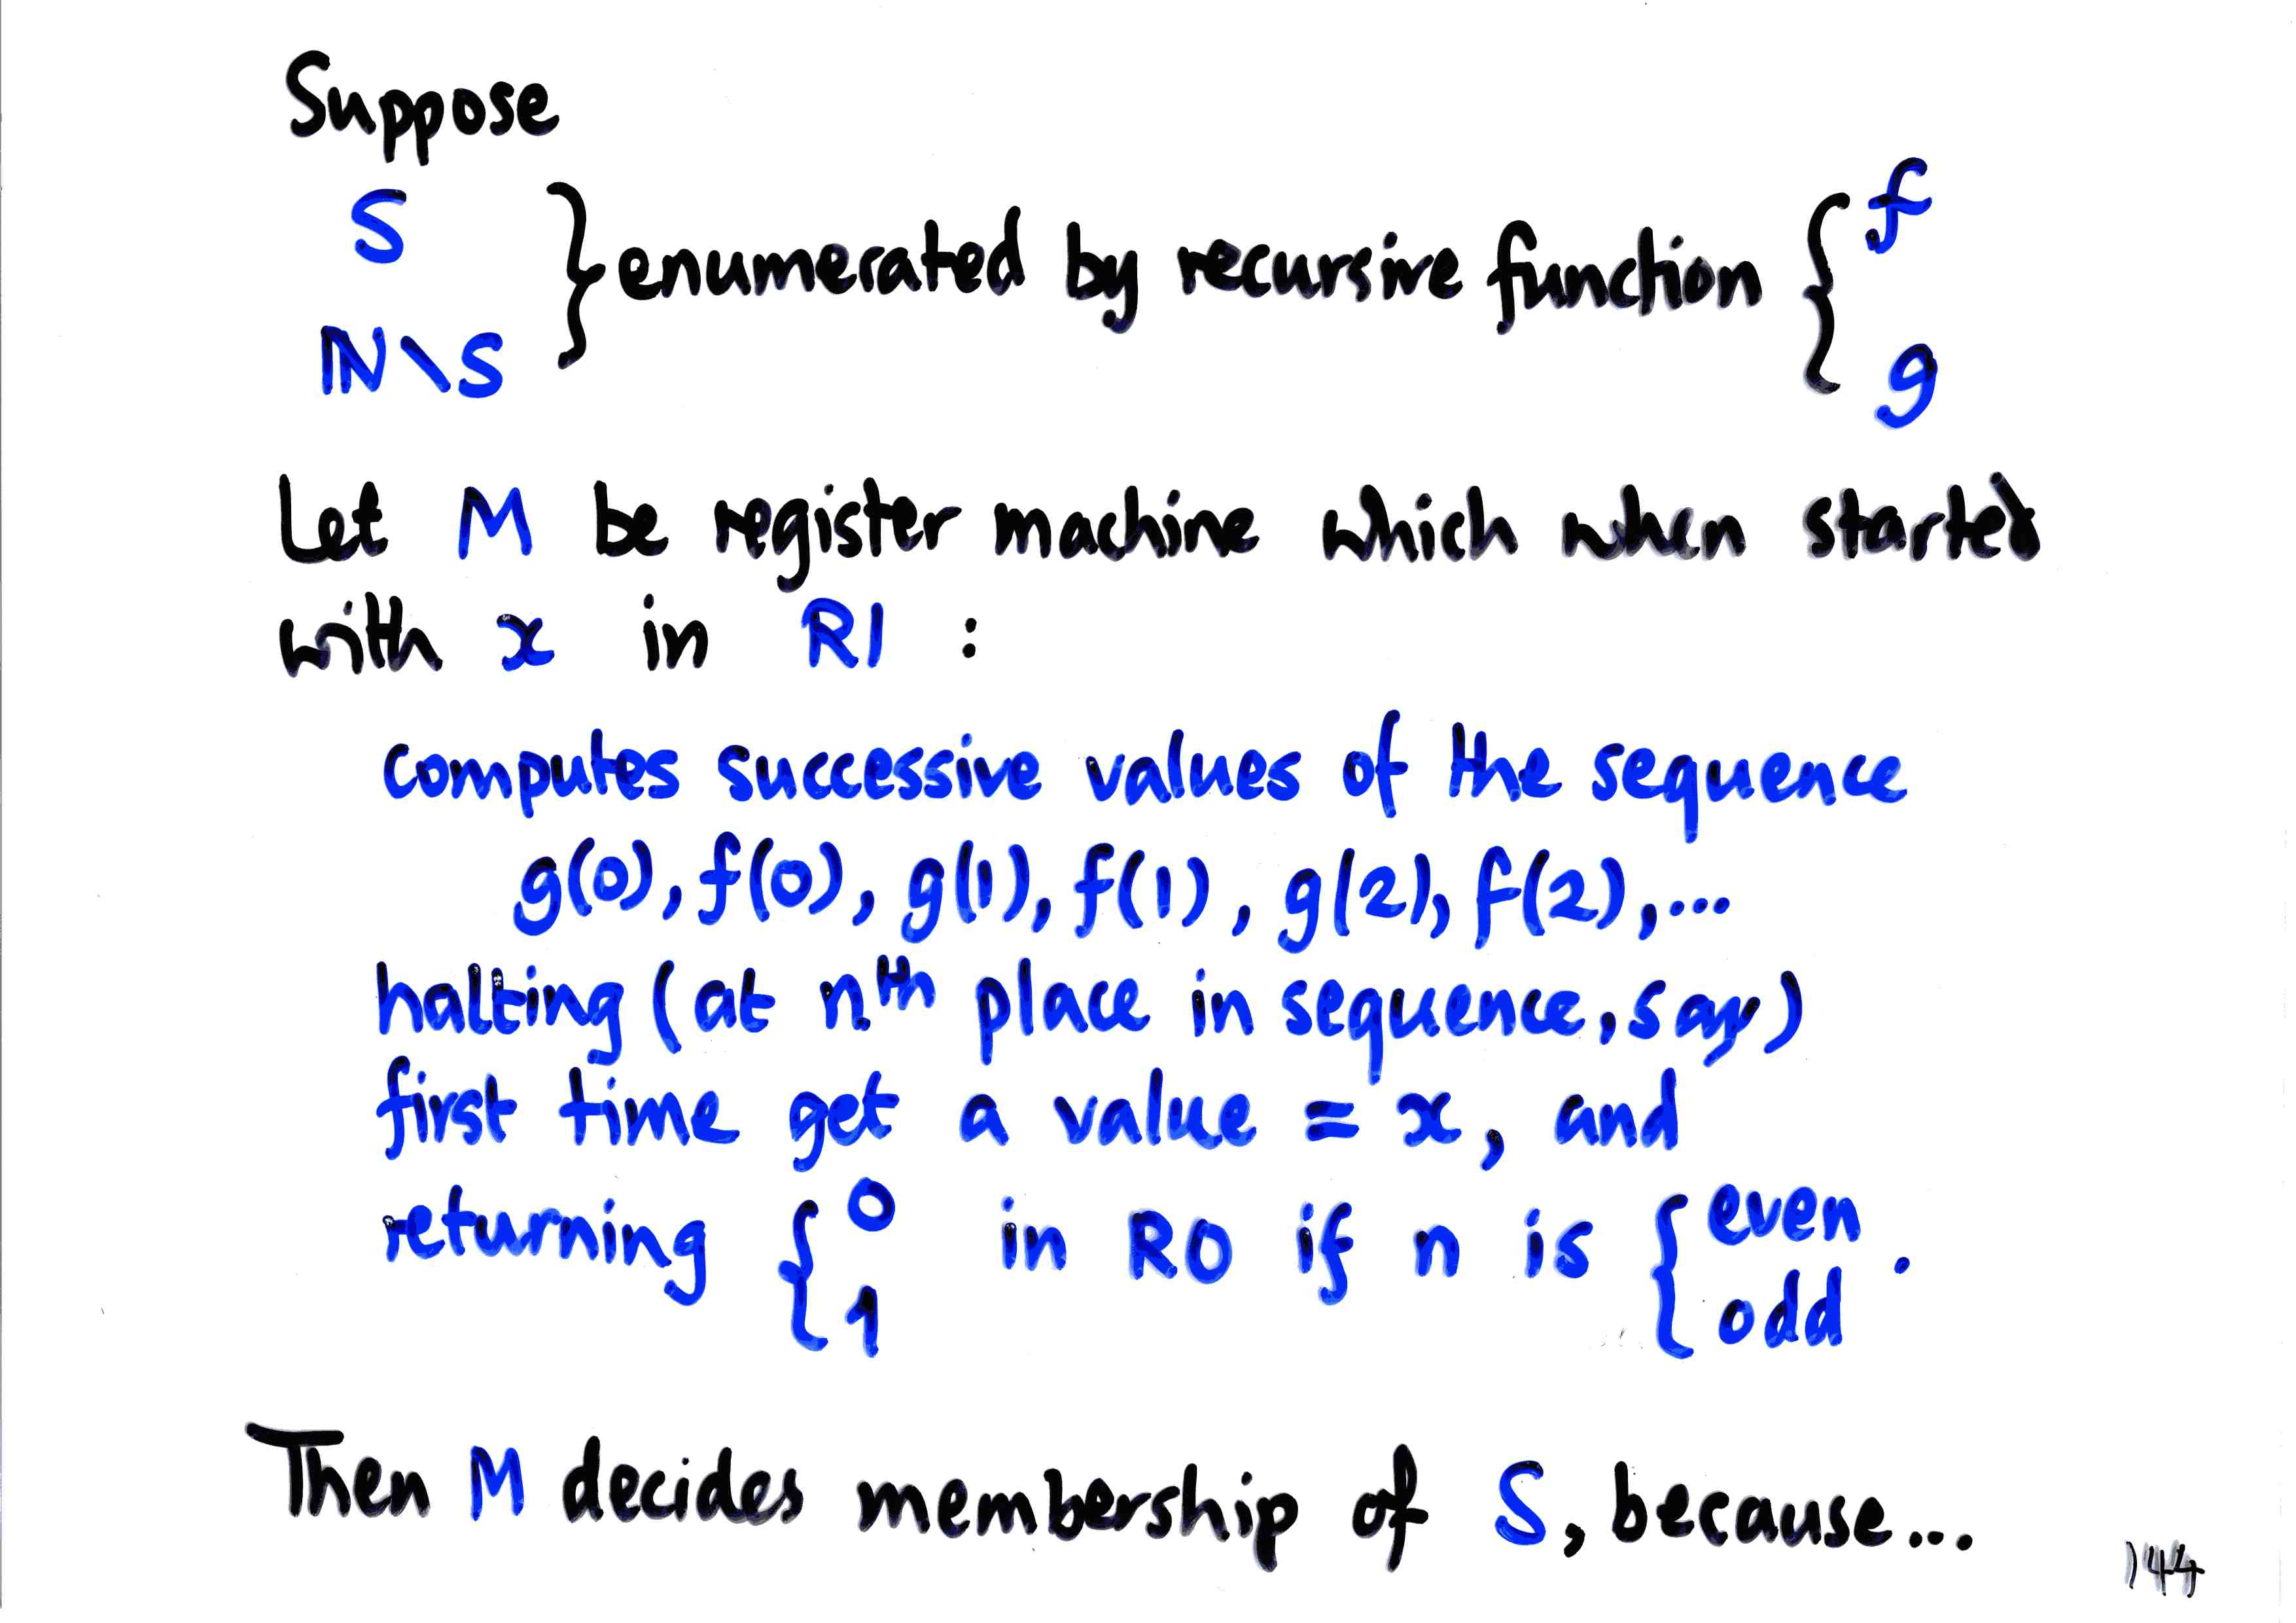 Suppose
S
ℕ\S } enumerated by recursive function { f
g
Let M be register machine which when started
with x in R1 :
computes successive values of the sequence
g(0), f(0), g(1), f(1), g(2), f(2), ...
halting (at nth place in sequence, say)
first time get a value = x, and
returning { 0 1 in R0 if n is { even odd .
Then M decides membership of S, because...
144